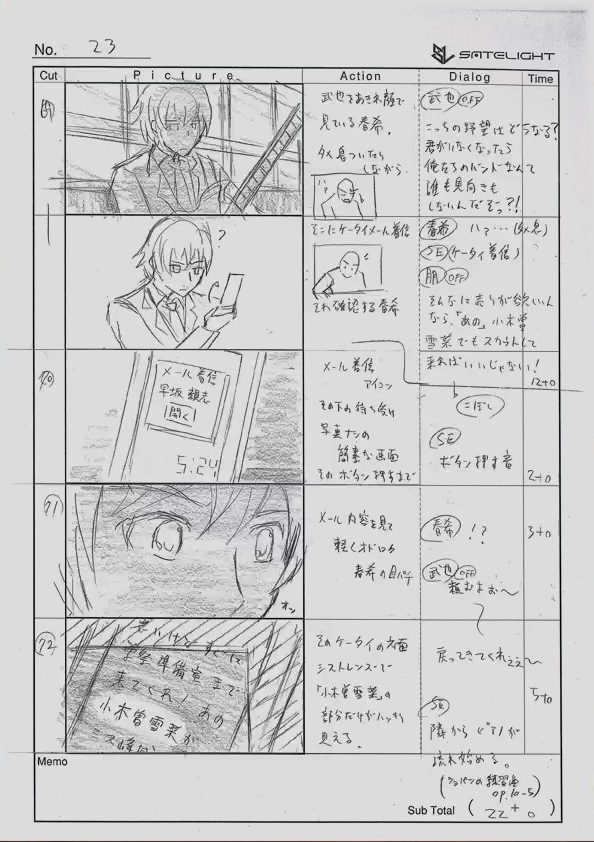 No. 23
SATELIGHT
Cut Picture Action Dialog Time
武也をあきれ顔で
見ている春希。
タメ息ついたり
しながら
武也 OFF
こっちの野望はどうなる?
君がいなくなったら
俺たちのバンドなんて
誰も見向きも
しないんだぞっ?!
?
そこにケータイメール着信
それ確認する春希
春希 ハァ…(タメ息)
SE(ケータイ着信)
OFF
そんなに売りが欲しいん
なら、「あの」小木曽
雪菜でもスカウトして
来ればいいじゃない!
12+0
70
メール着信
早坂親志
開く
5:24
メール着信
アイコン
その下の待ち受け
写真ナシの
簡素な画面
そのボタン押すまで
こぼし
SE
ボタン押す音
2+0
71
メール内容を見て
軽くオドロク
春希の目パチ
春希 !?
武也 OFF
頼むよぉ〜
3+0
72
学祭準備室まで
来てくれ!あの
小木曽雪菜が
ミス峰
そのケータイの文面
「小木曽雪菜」の
部分だけがハッキリ
見える。
戻ってきてくれぇぇ〜
SE
隣からピアノが
流れ始める。
(ショパンの練習曲
op.10-5)
5+0
Memo
Sub Total ( 22 + 0 )